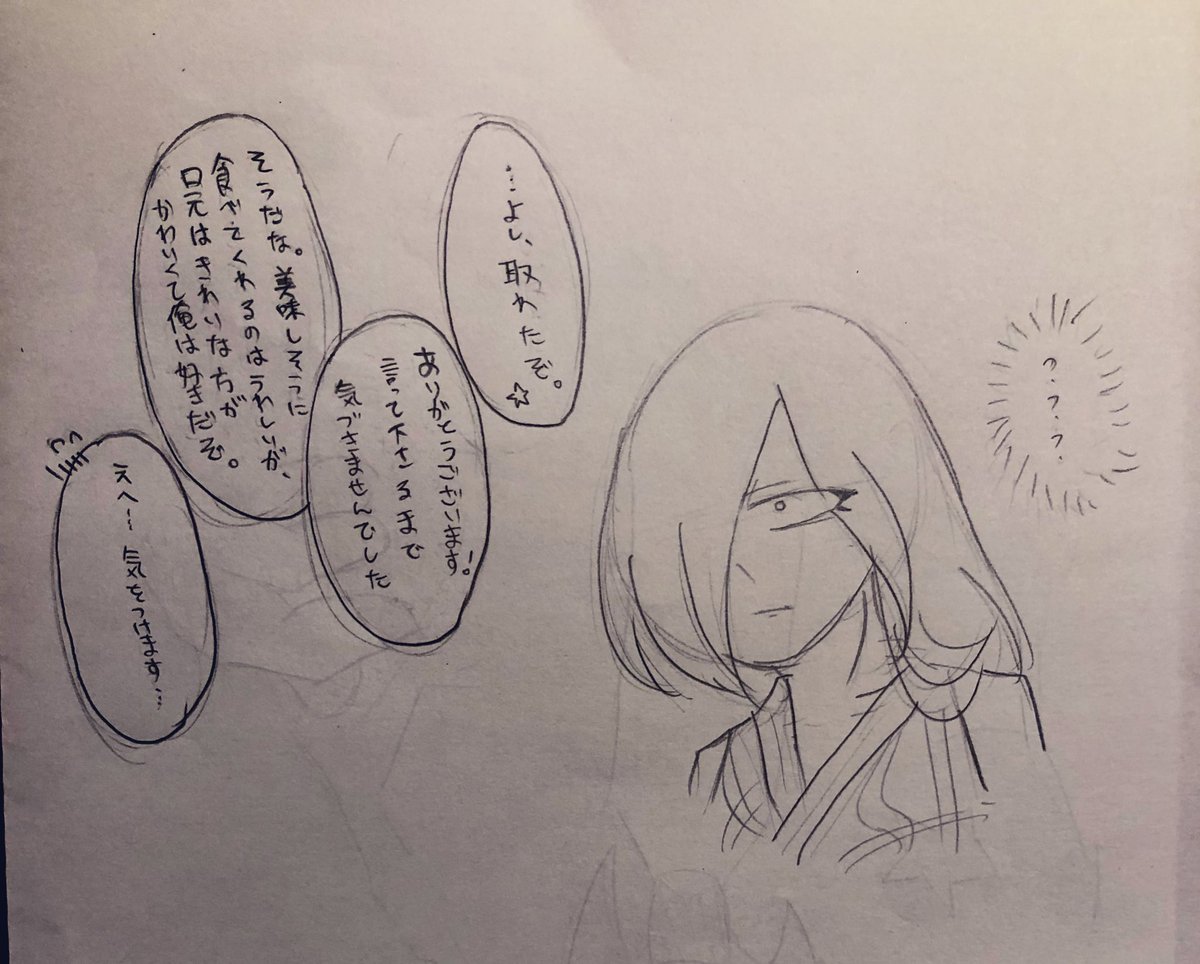 …よし、取れたぞ。☆
ありがとうございます!
言って下さるまで
気づきませんでした
そうだな。美味しそうに
食べてくれるのはうれしいが、
口元はきれいな方が
かわいくて俺は好きだぞ。
えへ…気をつけます…